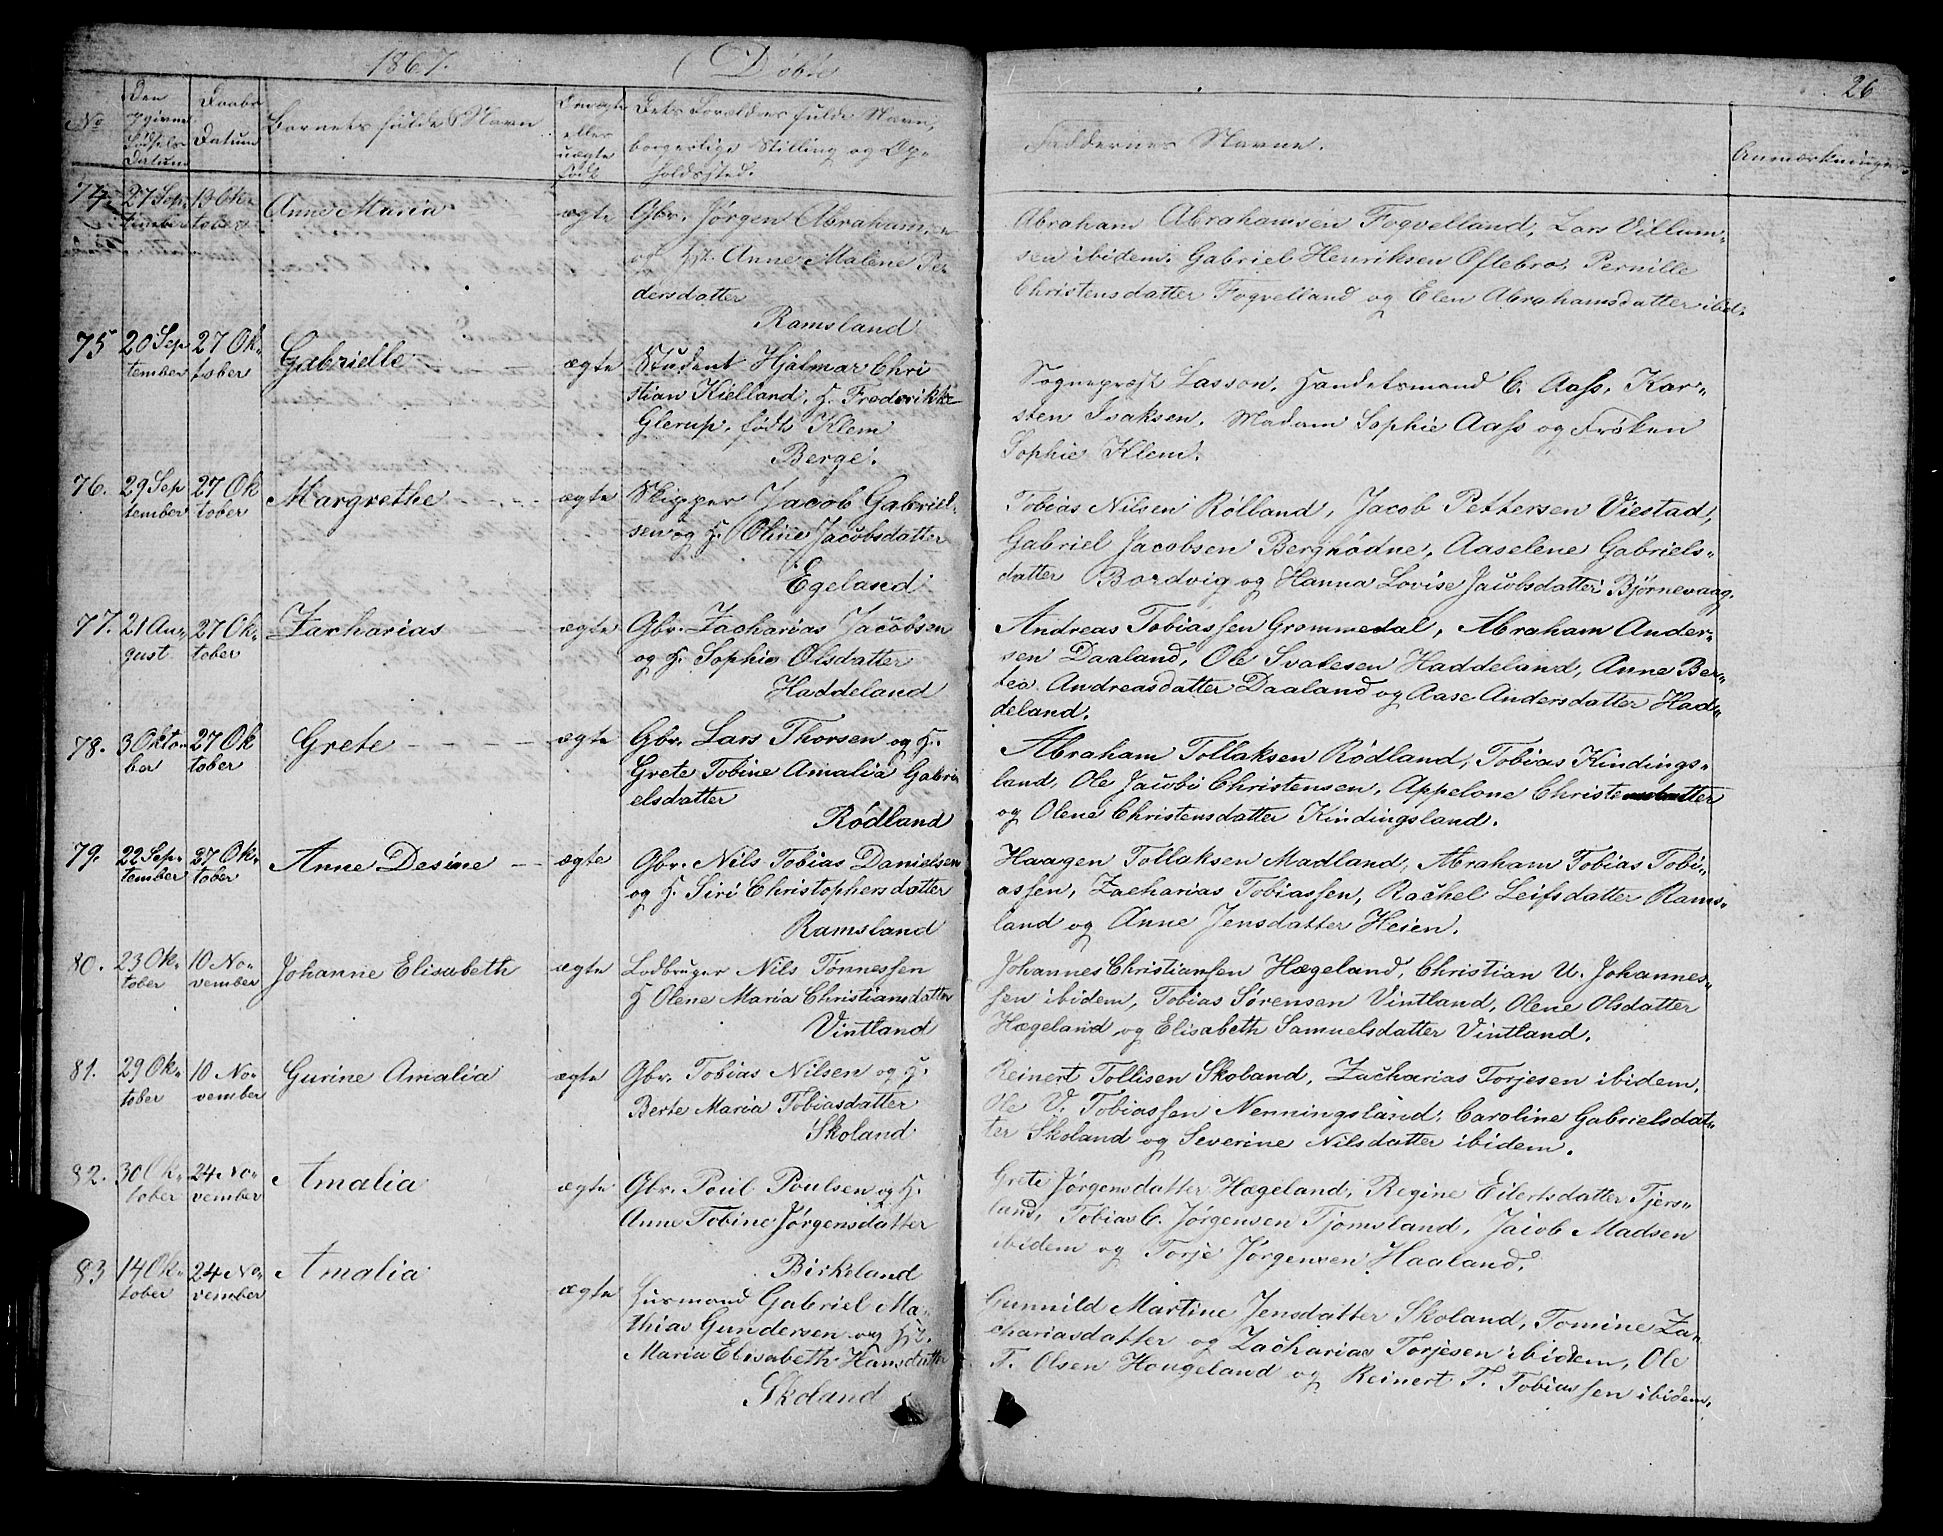 1867. Døbte
26
No
Den opgivne Fødsels Datum
Daabs Datum
Barnets fulde Navn
eller uægte født
Dets Forældres fulde Navn,
borgerlige Stilling og Op-
holdssted.
Faddernes Navne.
Anmærkninger
74. 27 Sep-
tember
13 Ok-
tober
Anne Maria
ægte
Gbr. Jørgen Abrahamsen
og H. Anne Malene Pe-
dersdatter
Ramsland
Abraham Abrahamsen Fogvelland, Lars Villum-
sen ibidem. Gabriel Henriksen Øftebro, Pernille
Christensdatter Fogvelland og Elen Abrahamsdatter ibid.
75 20 Sep
tember
27 Ok-
tober
Gabrielle
ægte
Student Hjalmar Chri
stian Kielland, H. Frederikke
Glerup, født Klem
Berge.
Sognepræst Lasson. Handelsmand C. Aass, Kar-
sten Isaksen, Madam Sophie Aass og Frøken
Sophie Klem.
76. 29 Sep
tember
27 Ok
tober
Margrethe
ægte
Skipper Jacob Gabriel-
sen og H. Oline Jacobsdatter
Egeland
Tobias Nilsen Rølland, Jacob Pettersen Viestad,
Gabriel Jacobsen Berghødne, Aaselene Gabriels-
datter Bordvig og Hanna Lovise Jacobsdatter Bjørnevaag.
77. 21 Au-
gust
27 Ok-
tober
Zacharias
ægte
Gbr. Zacharias Jacobsen
og H. Sophie Olsdatter
Haddeland
Andreas Tobiassen Grommedal, Abraham Ander-
sen Daaland, Ole Svalesen Haddeland, Anne Ber-
tea Andreasdatter Daaland og Aase Andersdatter Had-
deland.
78. 3 Okto-
ber
27 Ok
tober
Grete
ægte
Gbr. Lars Thorsen og H.
Grete Tobine Amalia Gabri
elsdatter
Rødland
Abraham Tollaksen Rødland, Tobias Kindings-
land, Ole Jacobi Christensen, Appelone Christensdatter
og Olene Christensdatter Kindingsland.
79. 22 Sep-
tember
27 Ok-
tober
Anne Desine
ægte
Gbr. Nils Tobias Danielsen
og H. Siri Christophersdatter
Ramsland
Haagen Tollaksen Madland, Abraham Tobias Tobi-
assen, Zacharias Tobiassen, Rachel Leifsdatter Rams-
land og Anne Jensdatter Heien.
80. 23 Ok-
tober
10 No-
vember
Johanne Elisabeth
ægte
Lodbruger Nils Tønnessen
H Olene Maria Christiansdatter
Vintland
Johannes Christiansen Hægeland, Christian U. Johannes-
sen ibidem, Tobias Sørensen Vintland, Olene Olsdatter
Hægeland og Elisabeth Samuelsdatter Vintland.
81. 29 Ok-
tober
10 No-
vember
Gurine Amalia
ægte
Gbr. Tobias Nilsen og H.
Berte Maria Tobiasdatter
Skoland
Reinert Tollisen Skoland, Zacharias Torjesen ibidem,
Ole V. Tobiassen Nenningsland, Caroline Gabrielsdat-
ter Skoland og Severine Nilsdatter ibidem.
82. 30 Ok-
tober
24 No-
vember
Amalia
ægte
Gbr. Poul Poulsen og H.
Anne Tobine Jørgensdatter
Birkeland
Grete Jørgensdatter Hægeland, Regine Eilertsdatter Tjers-
land, Tobias C. Jørgensen Tjomsland, Jacob Madsen
ibidem og Torje Jørgensen Haaland.
83 14 Ok-
tober
24 No-
vember
Amalia
ægte
Husmand Gabriel Ma-
thias Gundersen og H.
Maria Elisabeth Hansdatter
Skoland
Gunnild Martine Jensdatter Skoland, Tomine Za-
chariasdatter og Zacharias Torjesen ibidem, Ole
T. Olsen Hougeland og Reinert T. Tobiassen ibidem.